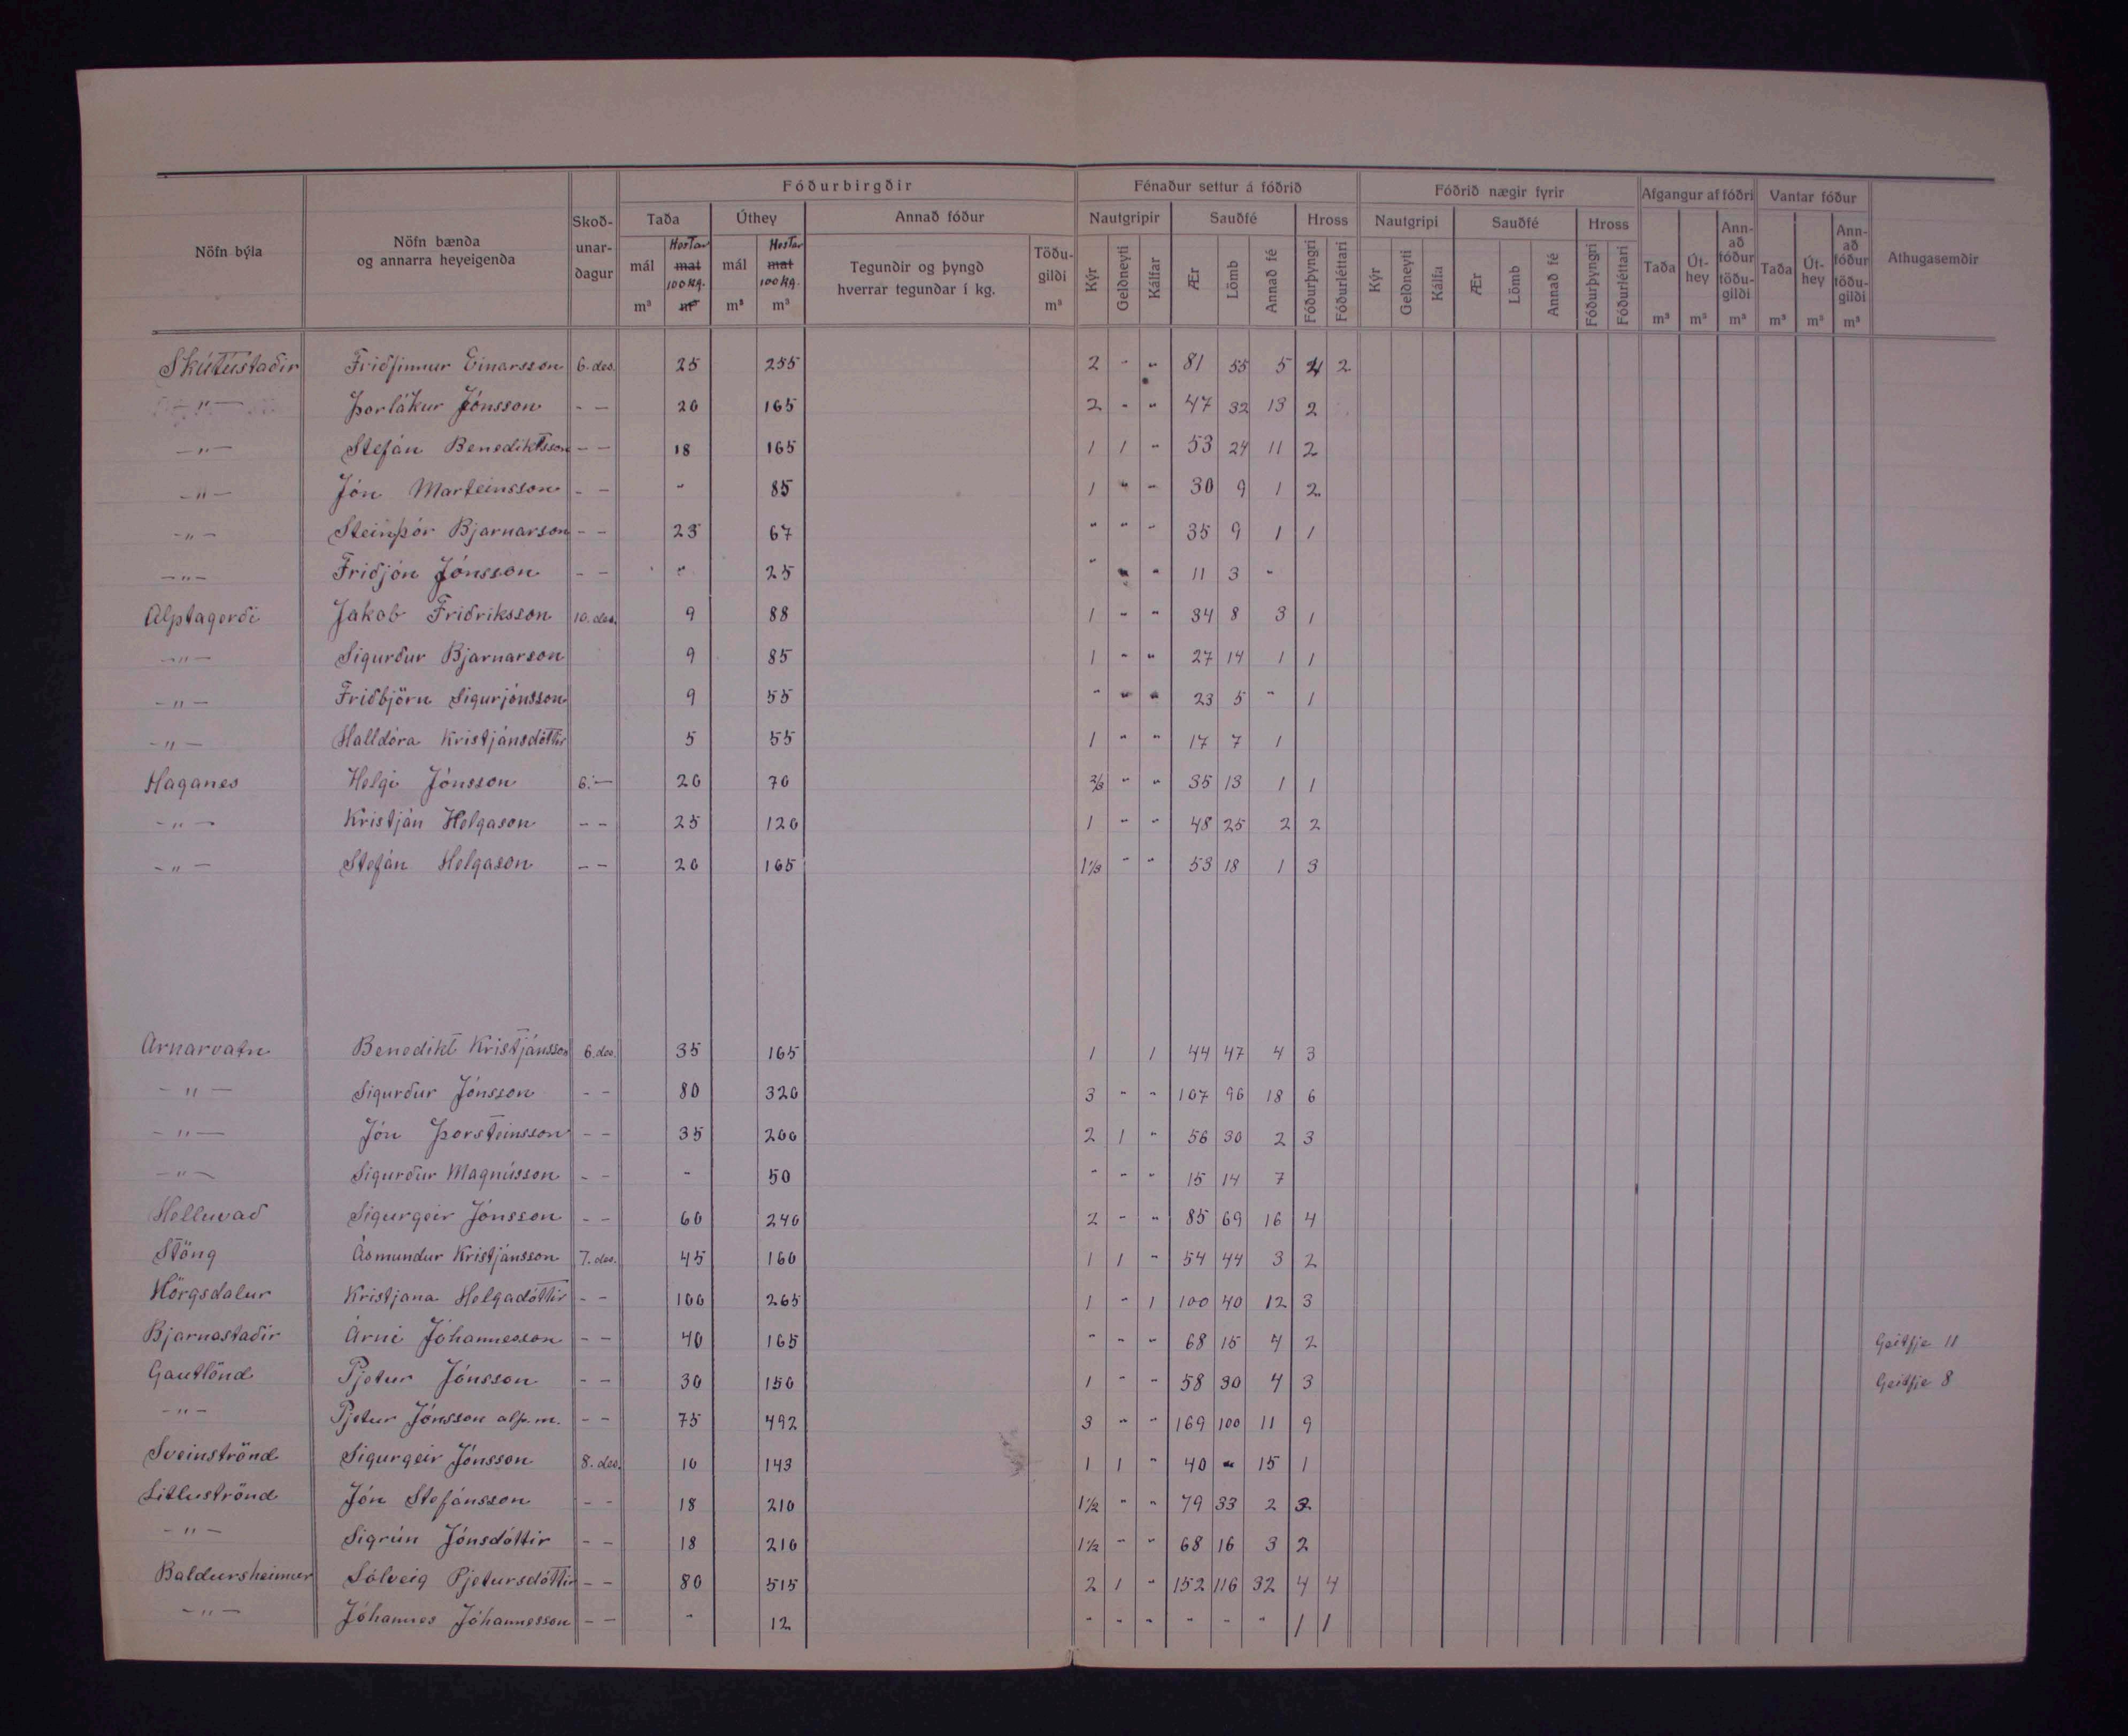 Fóðurbirgðir Fénaður settur á fóðrið Fóðrið nægir fyrir Afgangur af fóðri Vantar fóður
Nöfn býla Nöfn bænda og annarra heyeigenda Skoð-unar-dagur Taða Úthey Annað fóður Nautgripir Sauðfé Hross Nautgripi Sauðfé Hross Taða Út-hey Ann-að fóður töðu-gildi Taða Út-hey Ann-að fóður töðu-gildi Athugasemdir
mál m³ Hestar mat 100 kg. m³ mál m³ Hestar mat 100 kg. m³ Tegundir og þyngd hverrar tegundar í kg. Töðu-gildi m³ Kýr Geldneyti Kálfar Ær Lömb Annað fé Fóðurþyngri Fóðurléttari Kýr Geldneyti Kálfa Ær Lömb Annað fé Fóðurþyngri Fóðurléttari m³ m³ m³ m³ m³ m³
Skútustaðir Friðfinnur Einarsson 6. des. 25 255 2 " " 81 55 5 4 2
— " — Þorlákur Jónsson - - 20 165 2 " " 47 32 13 2
— " — Stefán Benediktsson - - 18 165 1 1 " 53 24 11 2
— " — Jón Marteinsson - - " 85 1 " " 30 9 1 2
— " — Steinþór Bjarnarson - - 23 67 " " " 35 9 1 1
— " — Friðjón Jónsson - - " 25 " " " 11 3 "
Alptagerði Jakob Friðriksson 10. des. 9 88 1 " " 34 8 3 1
— " — Sigurður Bjarnarson 9 85 1 " " 27 14 1 1
— " — Friðbjörn Sigurjónsson 9 55 " " " 23 5 " 1
— " — Halldóra Kristjánsdóttir 5 55 1 " " 17 7 1
Haganes Helgi Jónsson 6. — 20 70 2/3 " " 35 13 1 1
— " — Kristján Helgason - - 25 120 1 " " 48 25 2 2
— " — Stefán Helgason - - 20 165 1 1/3 " " 53 18 1 3
Arnarvatn Benedikt Kristjánsson 6. des. 35 165 1 1 44 47 4 3
— " — Sigurður Jónsson - - 80 320 3 " " 107 96 18 6
— " — Jón Þorsteinsson - - 35 200 2 1 " 56 30 2 3
— " — Sigurður Magnússon - - " 50 " " " 15 14 7
Helluvað Sigurgeir Jónsson - - 60 240 2 " " 85 69 16 4
Stöng Ásmundur Kristjánsson 7. des. 45 160 1 1 " 54 44 3 2
Hörgsdalur Kristjana Helgadóttir - - 100 265 1 " 1 100 40 12 3
Bjarnastaðir Árni Jóhannesson - - 40 165 " " " 68 15 4 2 Geitfje 11
Gautlönd Pjetur Jónsson - - 30 150 1 " " 58 30 4 3 Geitfje 8
— " — Pjetur Jónsson alþ.m. - - 75 492 3 " " 169 100 11 9
Sveinströnd Sigurgeir Jónsson 8. des. 10 143 1 1 " 40 " 15 1
Litluströnd Jón Stefánsson - - 18 210 1 1/2 " " 79 33 2 2
— " — Sigrún Jónsdóttir - - 18 210 1 1/2 " " 68 16 3 2
Baldursheimur Sólveig Pjetursdóttir - - 80 515 2 1 " 152 116 32 4 4
— " — Jóhannes Jóhannesson - - " 12 " " " " " " 1 1